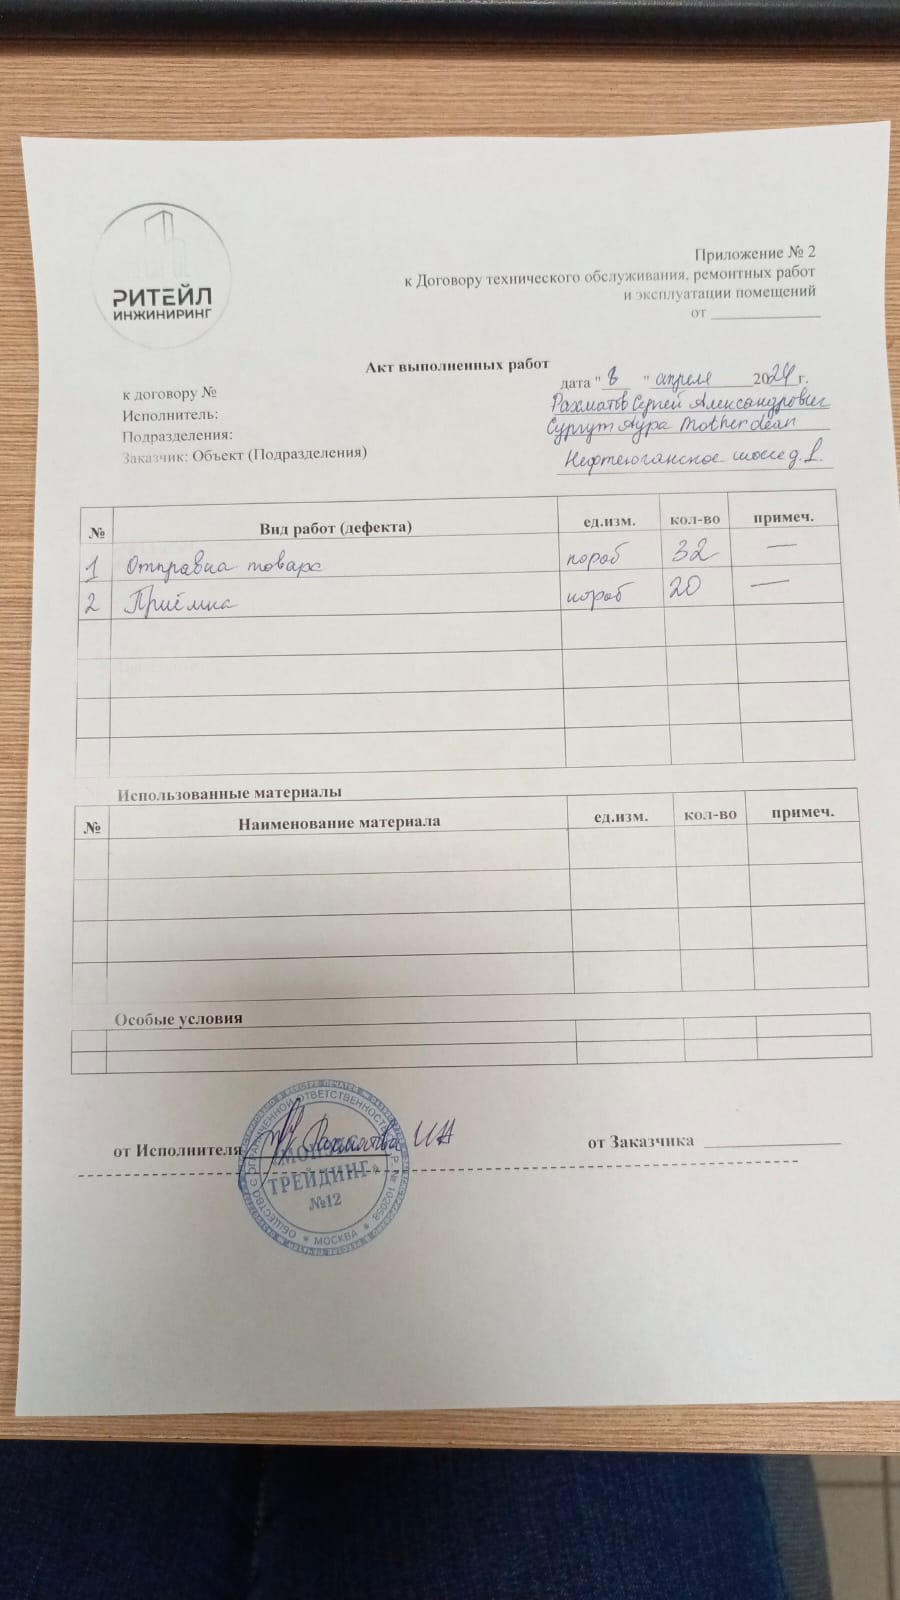 РИТЕЙЛ
ИНЖИНИРИНГ
Приложение № 2
к Договору технического обслуживания, ремонтных работ
и эксплуатации помещений
от ____________
Акт выполненных работ
к договору № дата " 8 " апреля 2024 г.
Исполнитель: Рахматов Сергей Александрович
Подразделения: Сургут Аура Motherdean
Заказчик: Объект (Подразделения) Нефтеюганское шоссе д. 1.
№ Вид работ (дефекта) ед.изм. кол-во примеч.
1 Отправка товара короб 32 —
2 Приёмка короб 20 —
Использованные материалы
№ Наименование материала ед.изм. кол-во примеч.
Особые условия
от Исполнителя от Заказчика ____________
ОБЩЕСТВО С ОГРАНИЧЕННОЙ ОТВЕТСТВЕННОСТЬЮ
ТРЕЙДИНГ»
№12
* МОСКВА *